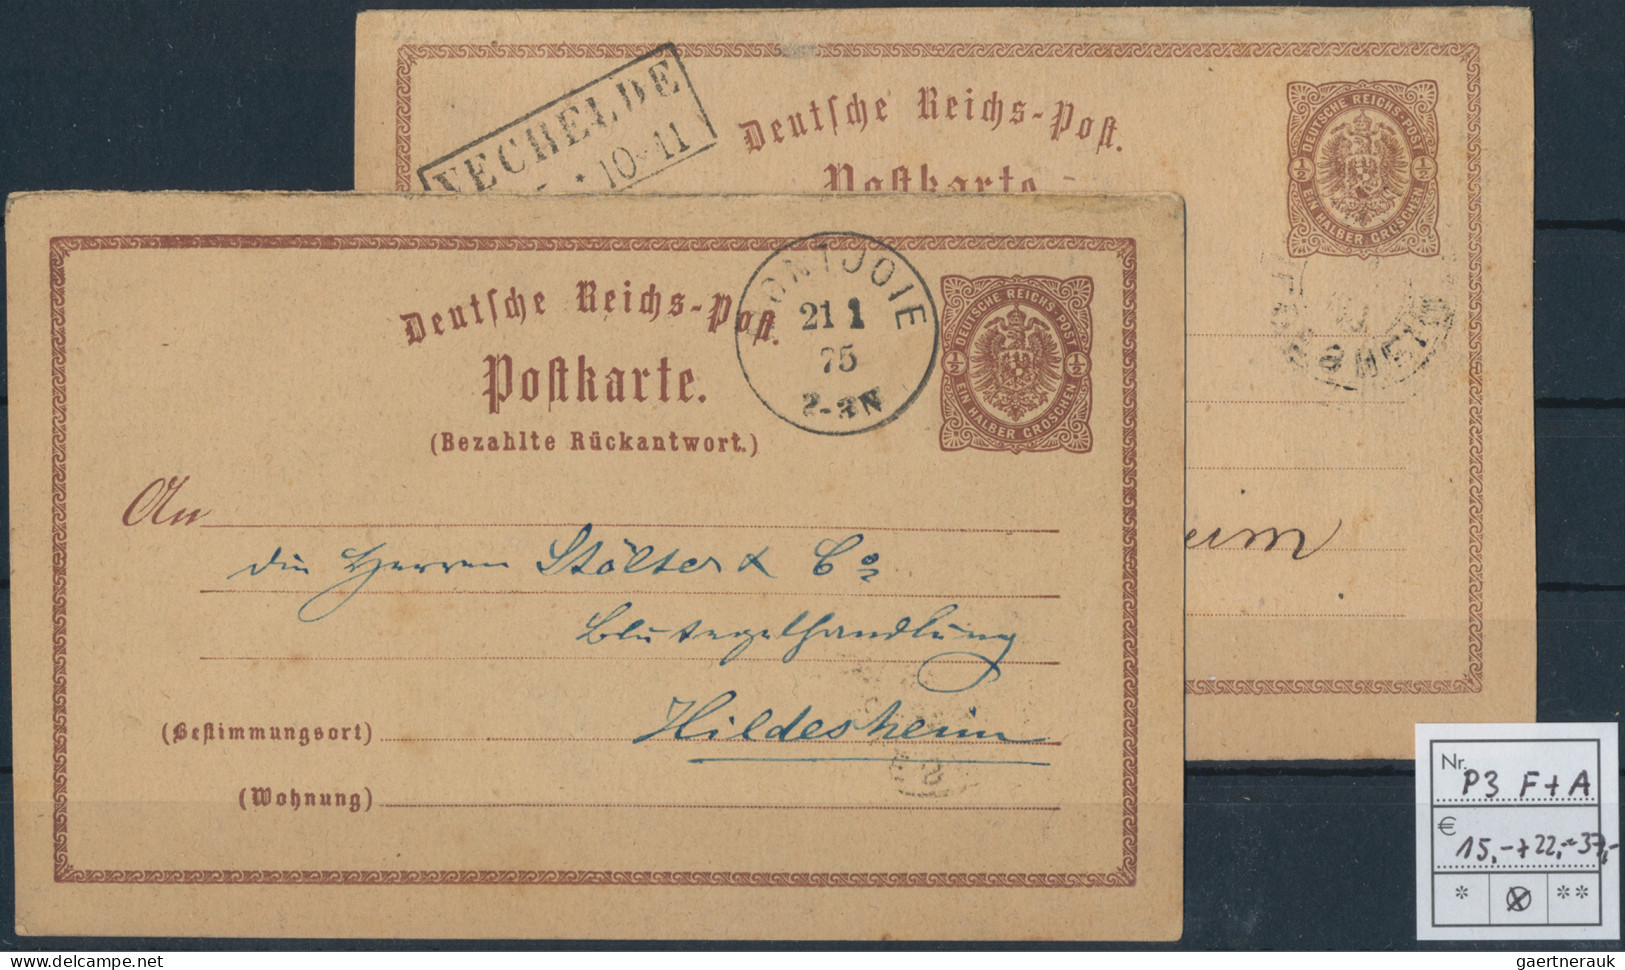 VECHELDE
10-11
Deutsche Reichs-Post.
Postkarte
DEUTSCHE REICHS-POST
½ ½
EIN HALBER GROSCHEN
eim
Deutsche Reichs-Post.
Postkarte.
(Bezahlte Rückantwort.)
MONTJOIE
21 1
75
2-3N
DEUTSCHE REICHS-POST
½ ½
EIN HALBER GROSCHEN
An
die Herren Stölter & Co
Blutegelhandlung
(Bestimmungsort) Hildesheim
(Wohnung)
Nr. P3 F+A
€ 15,-+22,-=37,-
* **
gaertnerauk
delcampe.net